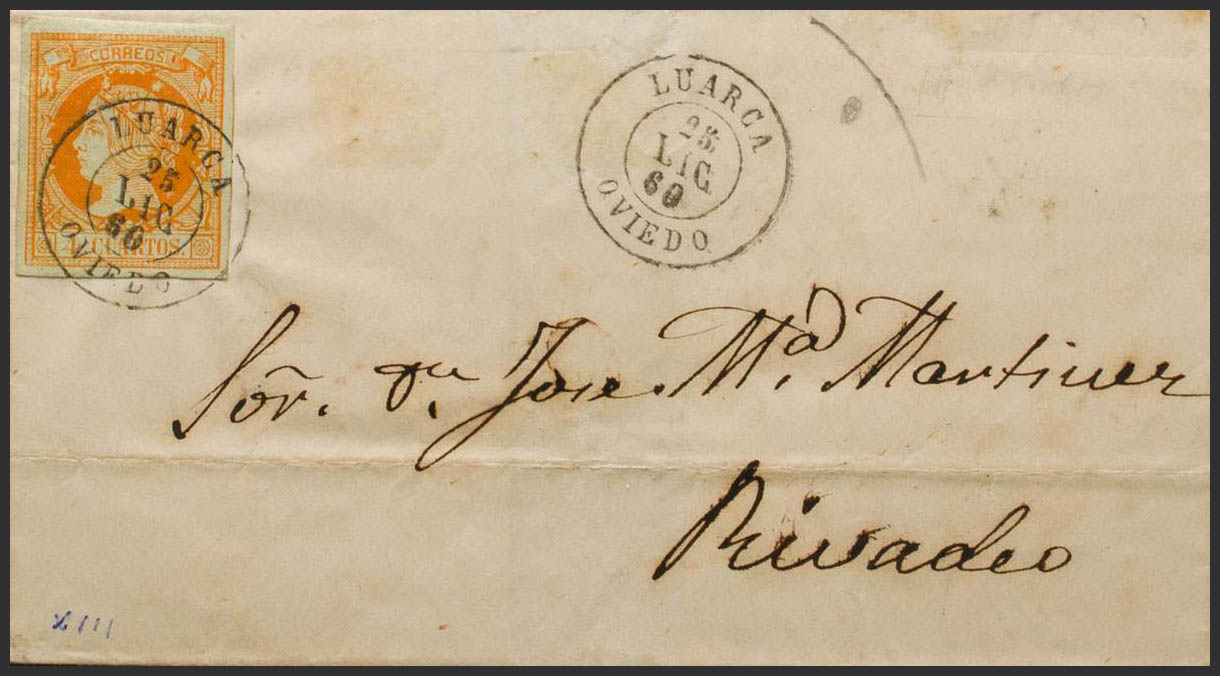 CORREOS
CUARTOS.
LUARCA
25
60
OVIEDO
LUARCA
25
60
OVIEDO
Sor. Dn. Jose Ma. Martinez
Rivadeo